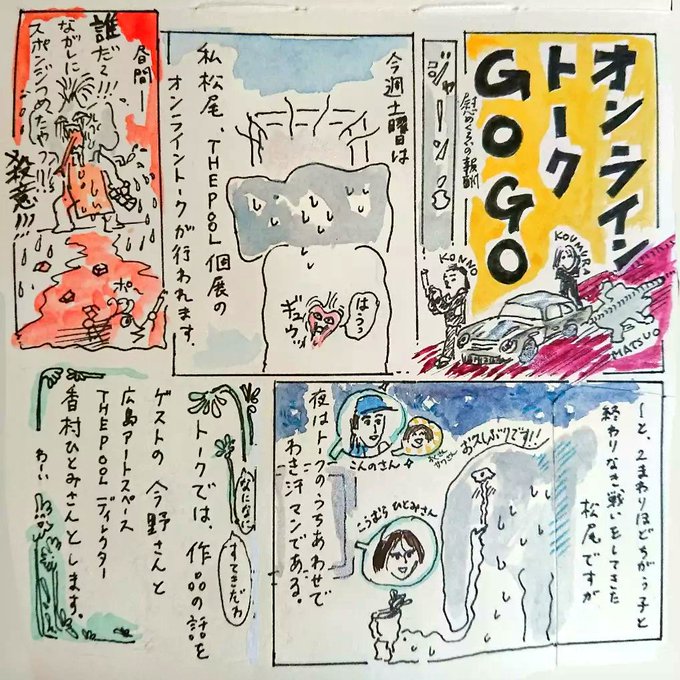 オンライン
トーク
GOGO
慰めくらいの報酬
KONNO
KOUMURA
MATSUO
今週土曜は
私松尾、THE POOL個展の
オンライントークが行われます。
はうっ
ギュウッ
昼間—
誰だぐ!!!
ながしに
スポンジつめたや
殺意!!!
ポ
〜と、2まわりほどちがう子と
終わりなき戦いをしてきた
松尾ですが
おひさしぶりです!!
こんのさん
こうむらひとみさん
夜はトークのうちあわせで
わき汗マンである。
なになに
すてきだわ
トークでは、作品の話を
ゲストの今野さんと
広島アートスペース
THE POOLディレクター
香村ひとみさんとします。
わーい